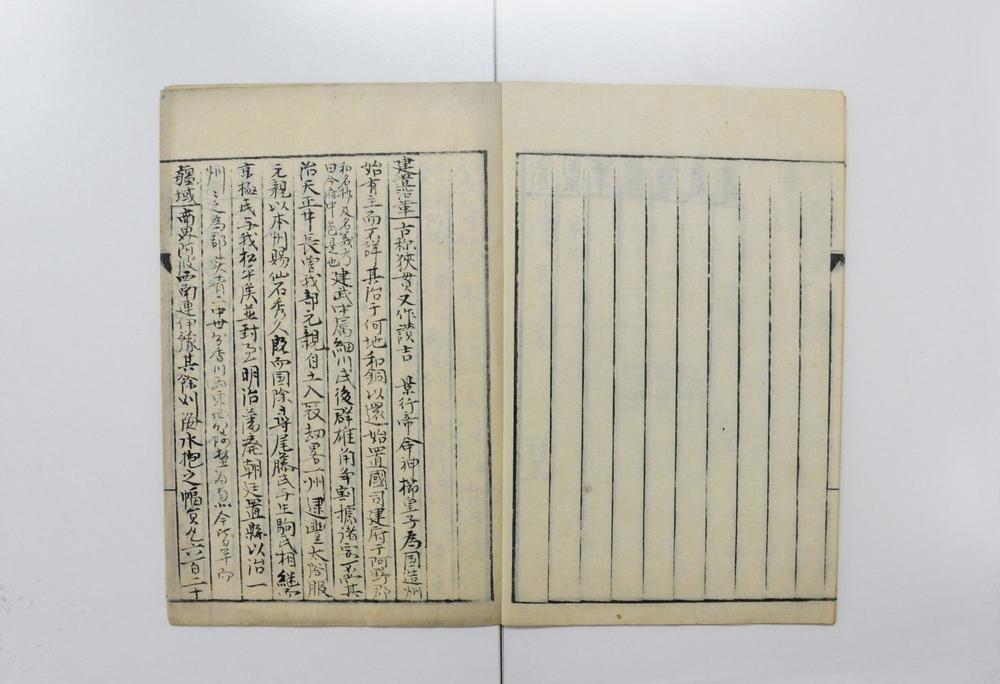 建置沿革 古称狭貫又作讃吉 景行帝命神櫛皇子為国造州
始有主而不詳其治于何地和銅以還始置國司建府于阿野郡
和名抄及名義考
曰今府中邑是也
建武中属細川氏後群雄角争割據諸家不
治天正中長曽我部元親自土入寇劫畧一州逮豊太閤服
元親以本州賜仙石秀久既而国除尋尾藤氏与生駒氏相継
京極氏与我松平矦並封焉明治藩廃朝廷置縣以治一
州 之為郡 中世分香川為東西 今
疆域 南界阿波西南連伊豫其餘則海水抱之幅員凡六百二十